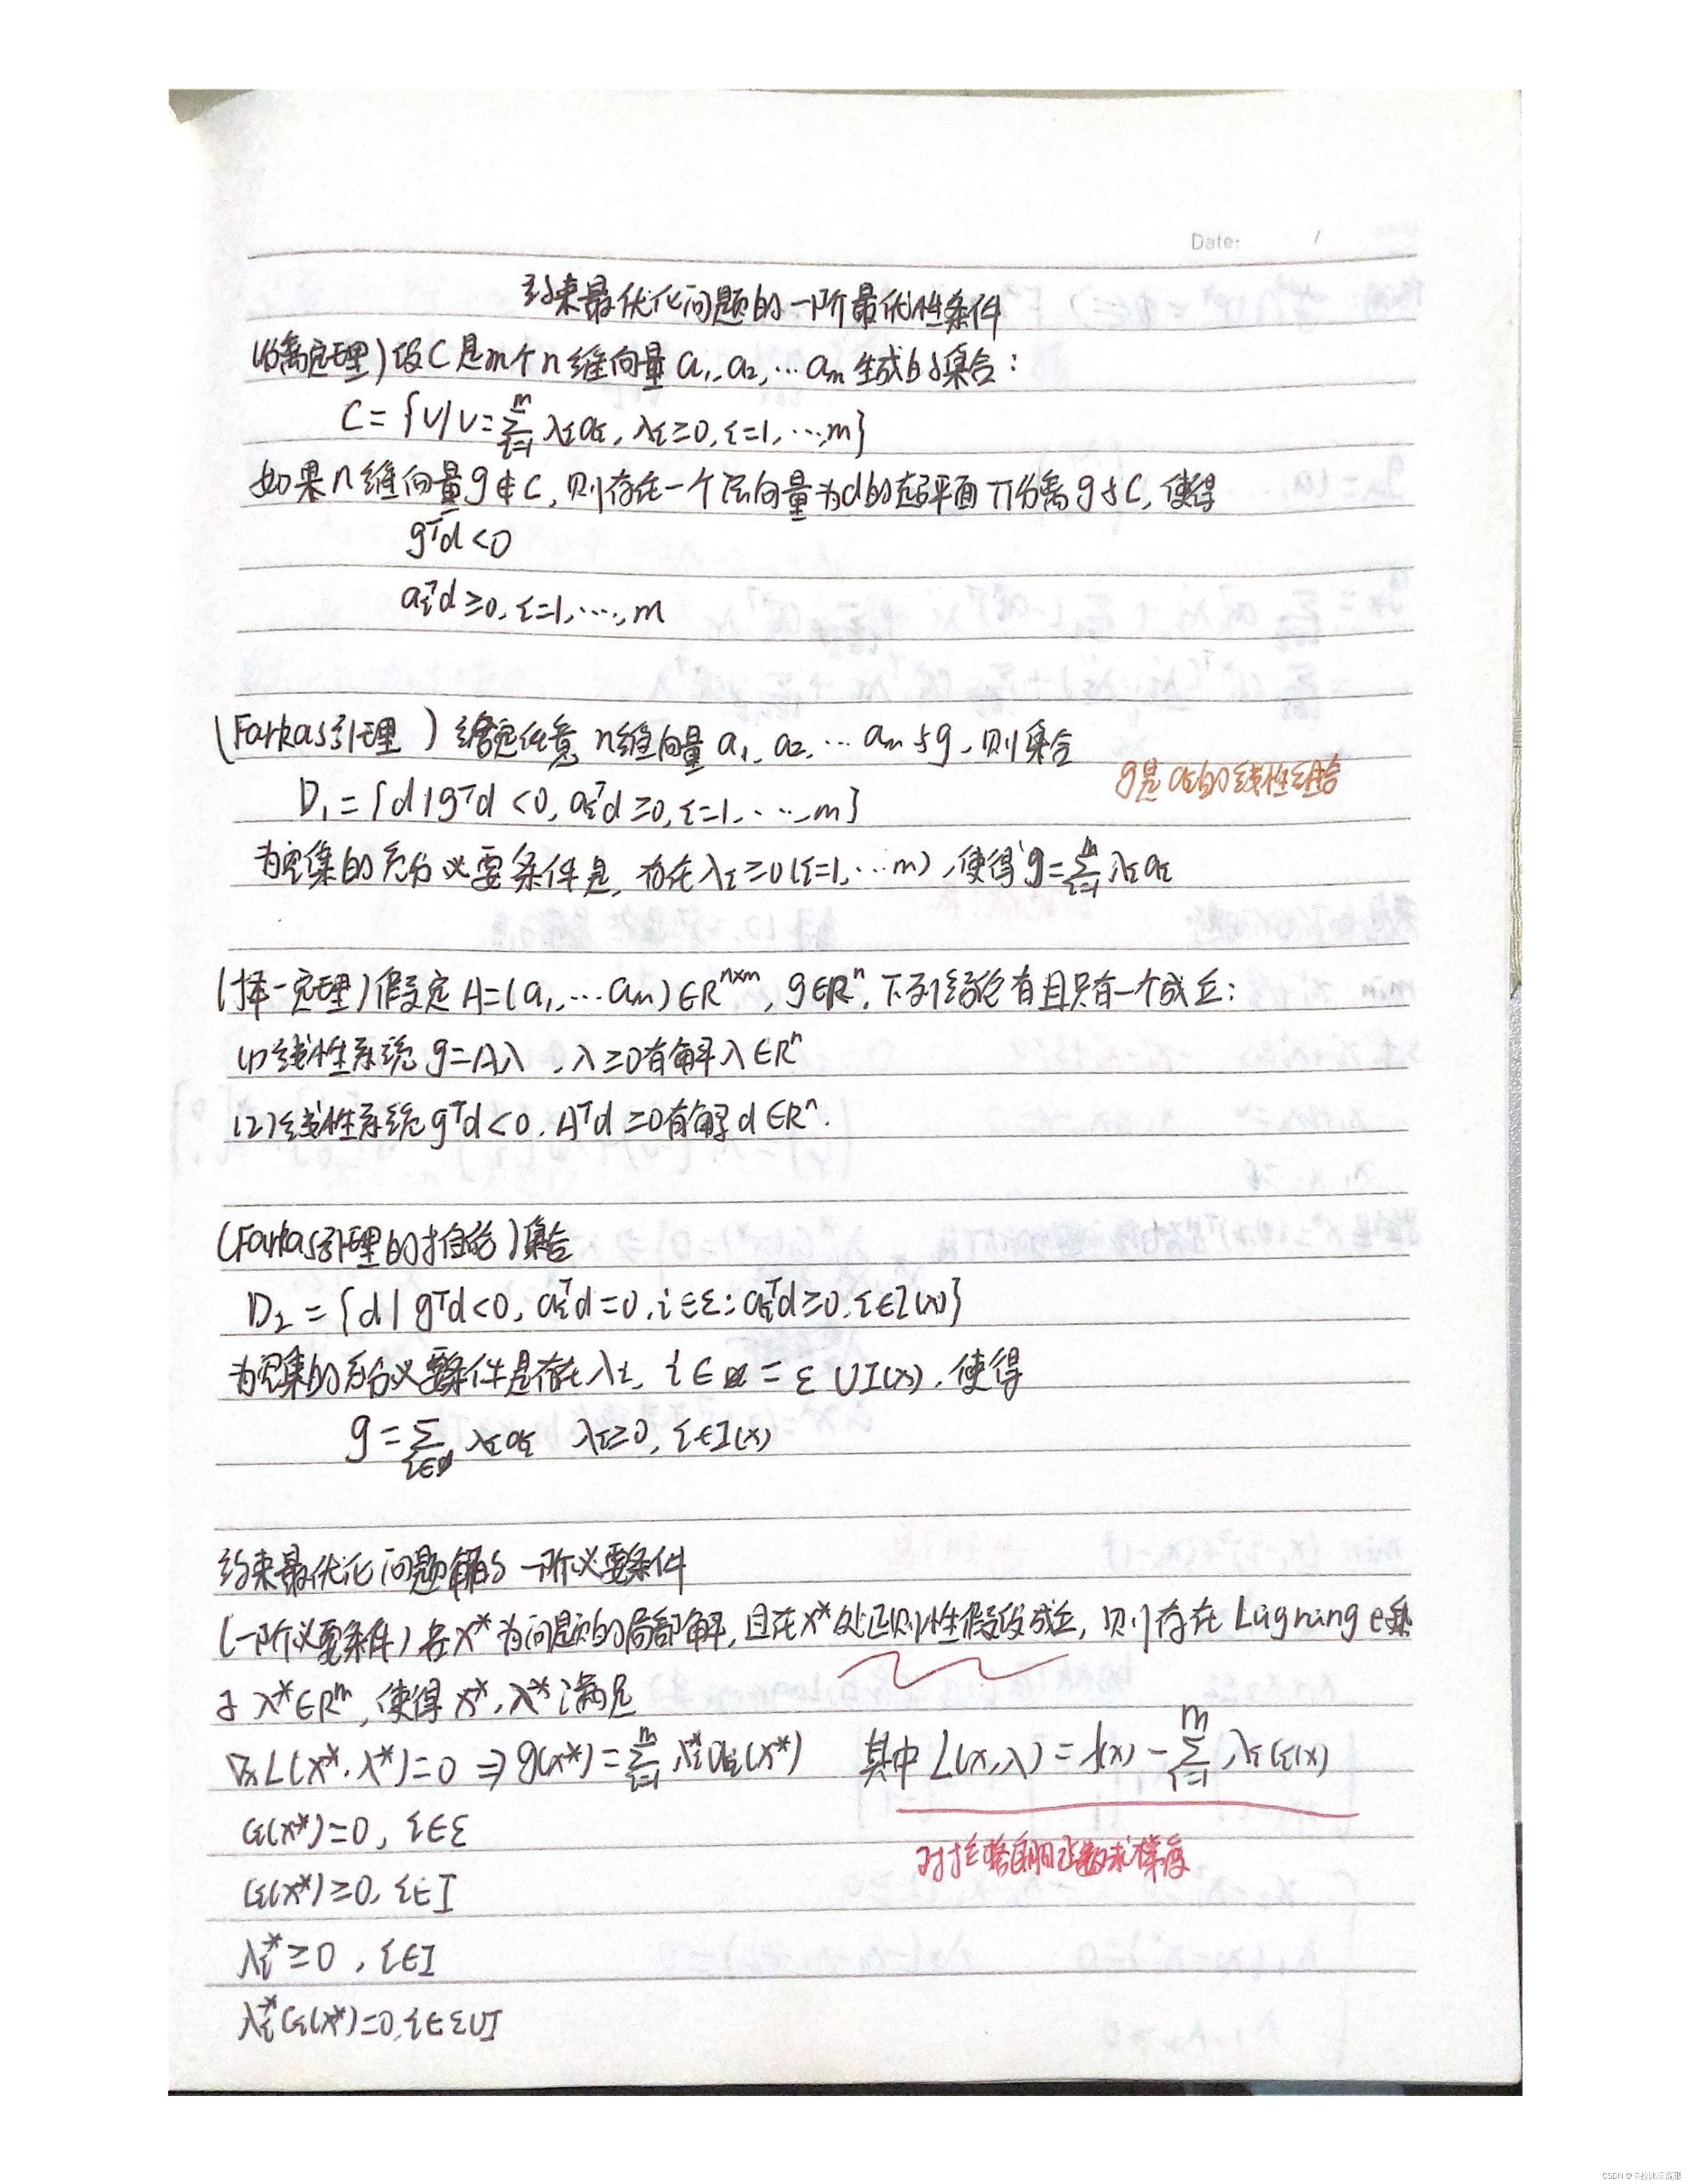 Date: /
约束最优化问题的一阶最优性条件
(分离定理)设C是m个n维向量 a₁,a₂,…aₘ生成的集合:
C={v|v=∑ᵢ₌₁ᵐ λᵢaᵢ, λᵢ≥0, i=1,…,m}
如果n维向量g∉C, 则存在一个法向量为d的超平面π分离g与C, 使得
gᵀd<0
aᵢᵀd≥0, i=1,…,m
(Farkas引理)给定任意n维向量 a₁,a₂,…aₘ与g, 则集合
g是aᵢ的线性组合
D₁={d|gᵀd<0, aᵢᵀd≥0, i=1,…,m}
为空集的充分必要条件是, 存在λᵢ≥0(i=1,…m), 使得g=∑ᵢ₌₁ᵐ λᵢaᵢ
(择一定理)假定A=(a₁,…aₘ)∈Rⁿˣᵐ, g∈Rⁿ, 下列结论有且只有一个成立:
(1)线性系统 g=Aλ, λ≥0有解λ∈Rⁿ
(2)线性系统gᵀd<0, Aᵀd≥0有解d∈Rⁿ.
(Farkas引理的推论)集合
D₂={d|gᵀd<0, aᵢᵀd=0, i∈ε; aᵢᵀd≥0, i∈I(x)}
为空集的充分必要条件是存在λᵢ, i∈ = ε∪I(x), 使得
g=∑ λᵢaᵢ λᵢ≥0, i∈I(x)
约束最优化问题解的一阶必要条件
(一阶必要条件)若x*为问题的局部解, 且在x*处正则性假设成立, 则存在Lagrange乘
子λ*∈Rᵐ, 使得x*,λ*满足
∇ₓL(x*,λ*)=0 ⇒ g(x*)=∑ᵢ₌₁ᵐ λᵢ*aᵢ(x*) 其中L(x,λ)=f(x)-∑ᵢ₌₁ᵐ λᵢcᵢ(x)
cᵢ(x*)=0, i∈ε
对拉格朗日函数求梯度
cᵢ(x*)≥0, i∈I
λᵢ*≥0, i∈I
λᵢ*cᵢ(x*)=0, i∈ε∪I
CSDN @卡拉比丘流形